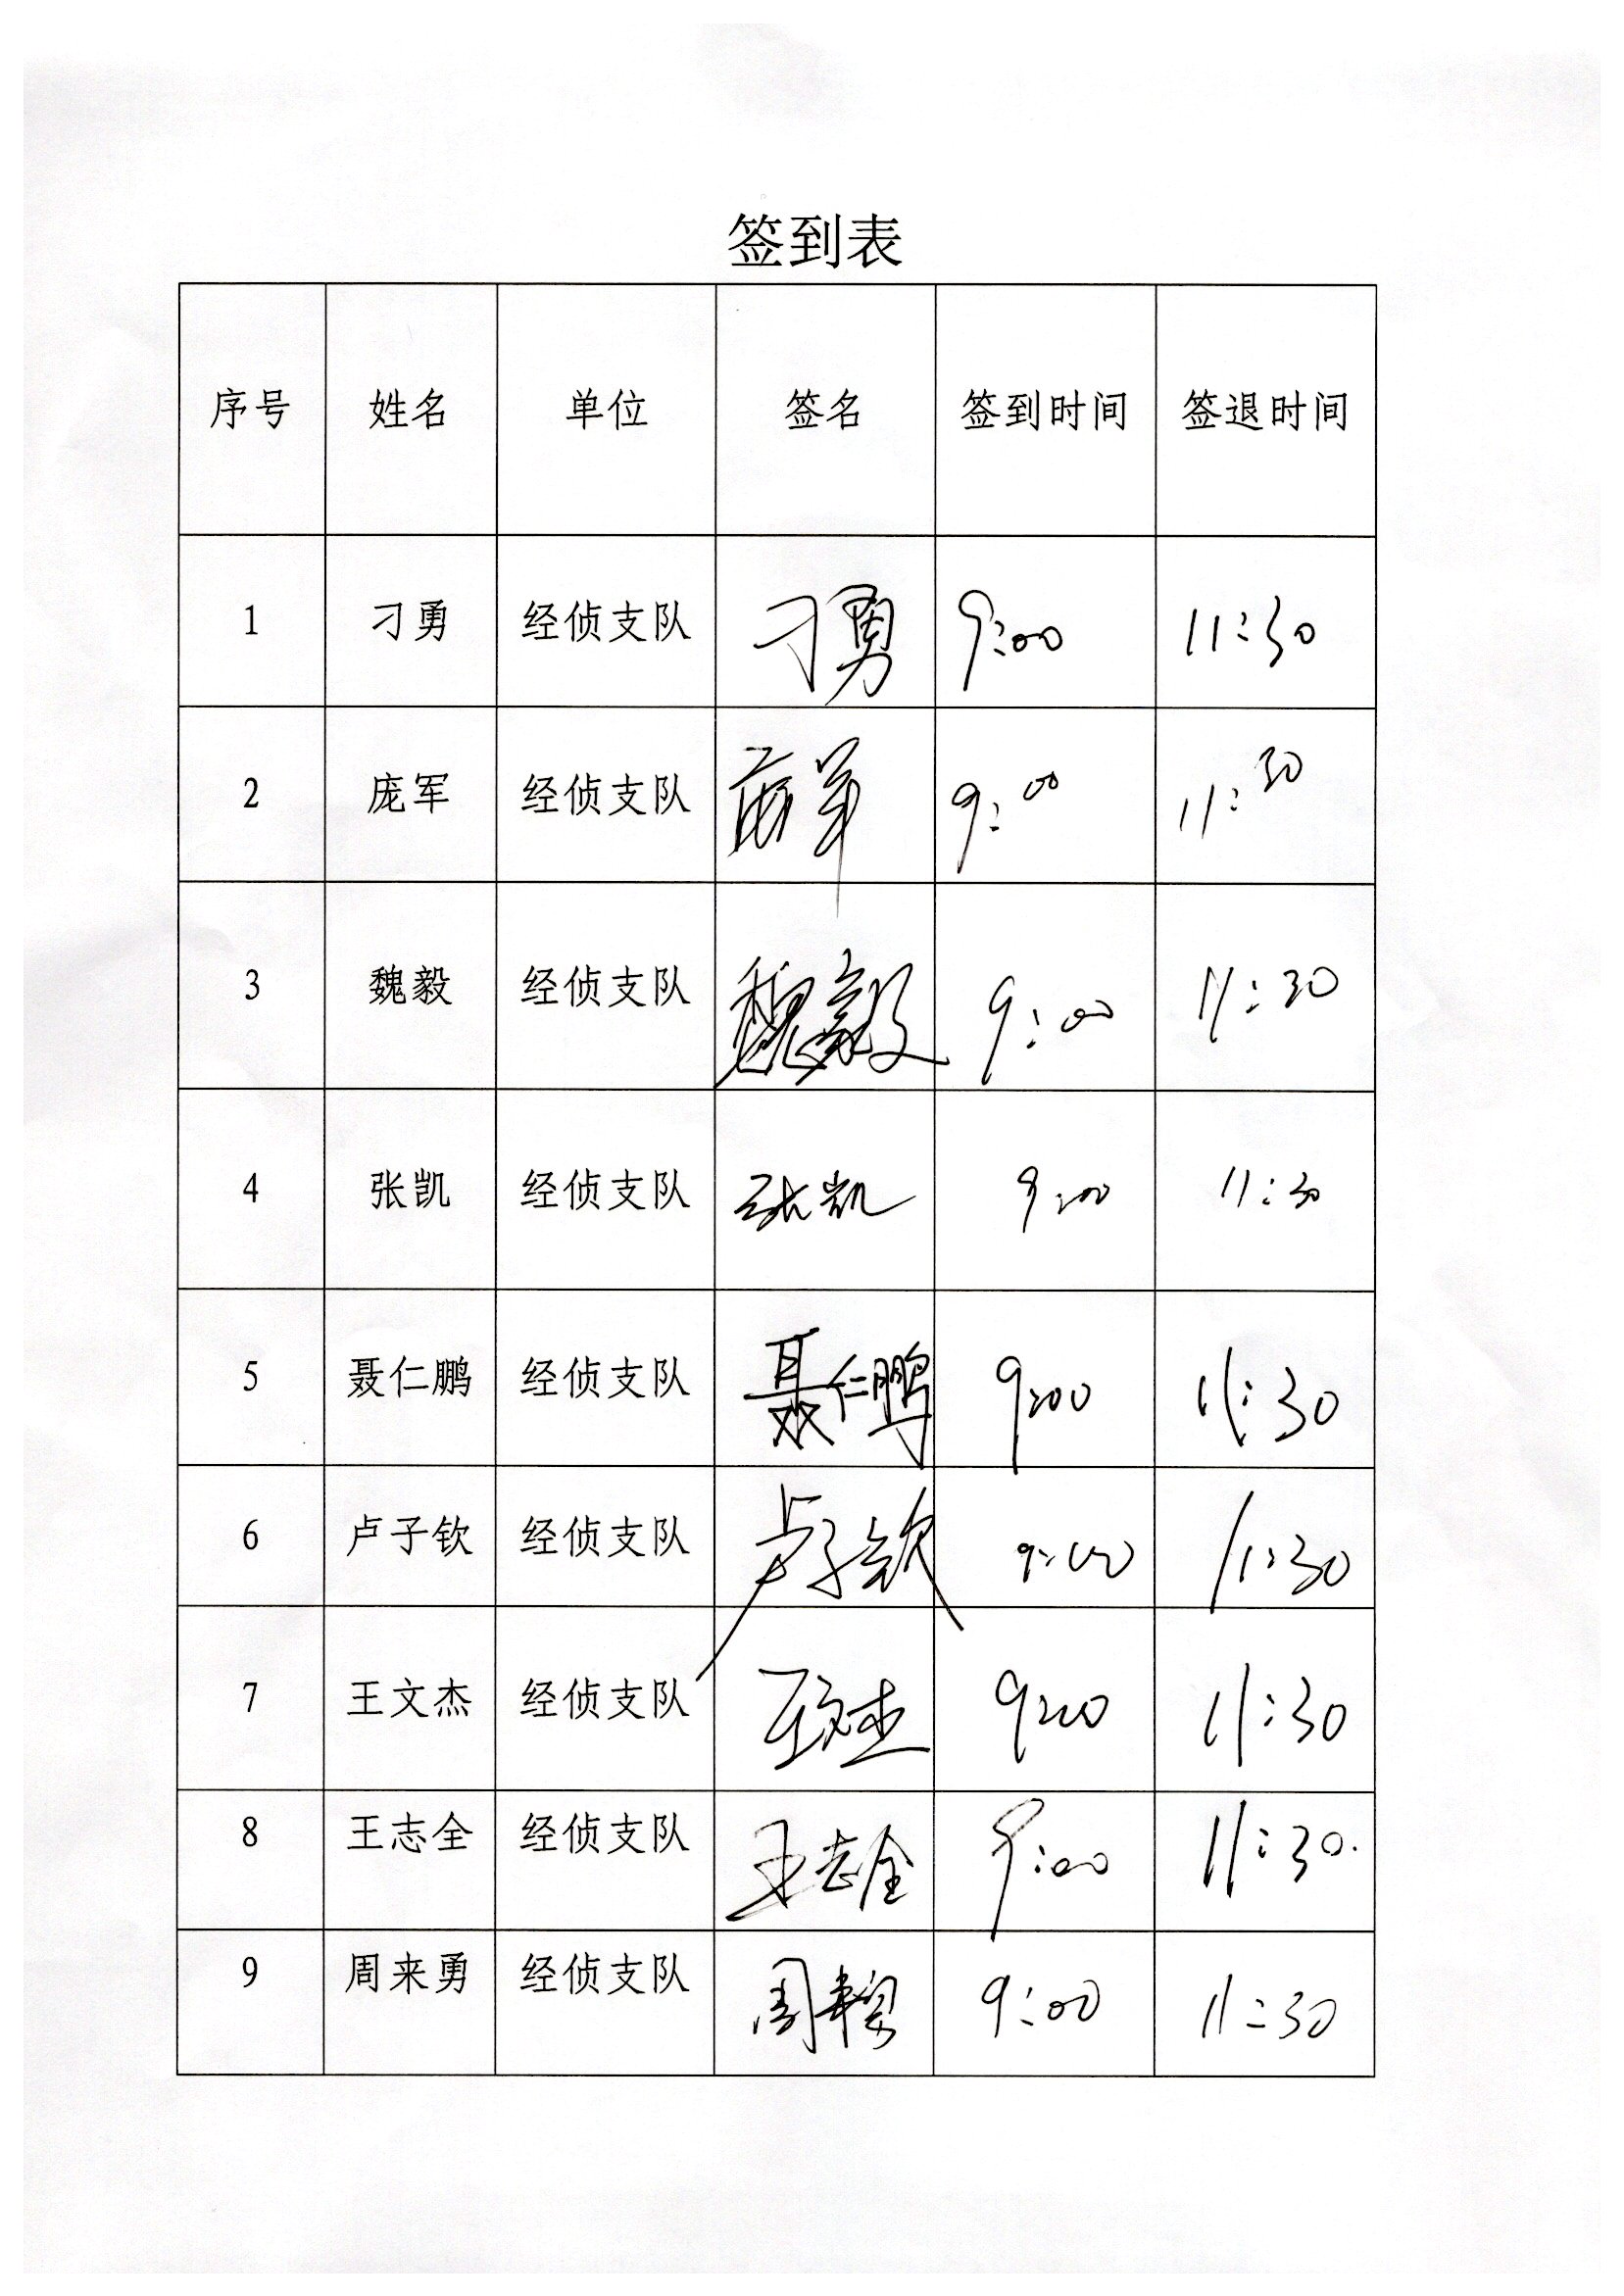 签到表
序号 姓名 单位 签名 签到时间 签退时间
1 刁勇 经侦支队 刁勇 9:00 11:30
2 庞军 经侦支队 庞军 9:00 11:30
3 魏毅 经侦支队 魏毅 9:00 11:30
4 张凯 经侦支队 张凯 9:00 11:30
5 聂仁鹏 经侦支队 聂仁鹏 9:00 11:30
6 卢子钦 经侦支队 卢子钦 9:00 11:30
7 王文杰 经侦支队 王文杰 9:00 11:30
8 王志全 经侦支队 王志全 9:00 11:30
9 周来勇 经侦支队 周来勇 9:00 11:30